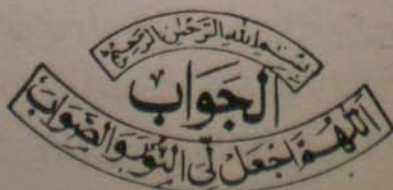 بِسْمِ اللهِ الرَّحْمٰنِ الرَّحِيْمِ
الجَوَاب
اَللّٰهُمَّ اجْعَلْ لِّی النُّوْرَ وَالصَّوَابَ